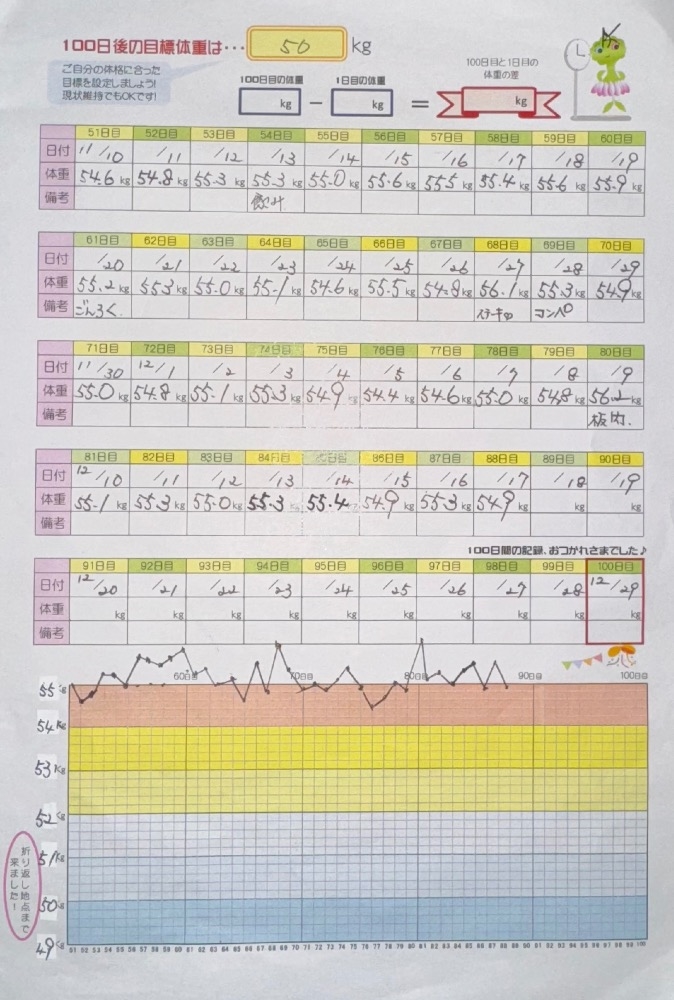 100日後の目標体重は… 50 kg
ご自分の体格に合った
目標を設定しましょう!
現状維持でもOKです!
100日目の体重 1日目の体重
100日目と1日目の
体重の差
kg － kg ＝ kg
51日目 52日目 53日目 54日目 55日目 56日目 57日目 58日目 59日目 60日目
日付 11/10 /11 /12 /13 /14 /15 /16 /17 /18 /19
体重 54.6kg 54.8kg 55.3kg 55.3kg 55.0kg 55.6kg 55.5kg 55.4kg 55.6kg 55.9kg
備考 飲み
61日目 62日目 63日目 64日目 65日目 66日目 67日目 68日目 69日目 70日目
日付 /20 /21 /22 /23 /24 /25 /26 /27 /28 /29
体重 55.2kg 55.3kg 55.0kg 55.1kg 54.6kg 55.5kg 54.8kg 56.1kg 55.3kg 54.9kg
備考 ごんろく コンペ
71日目 72日目 73日目 74日目 75日目 76日目 77日目 78日目 79日目 80日目
日付 11/30 12/1 /2 /3 /4 /5 /6 /7 /8 /9
体重 55.0kg 54.8kg 55.1kg 55.3kg 54.9kg 54.4kg 54.6kg 55.0kg 54.8kg 56.2kg
備考
81日目 82日目 83日目 84日目 85日目 86日目 87日目 88日目 89日目 90日目
日付 12/10 /11 /12 /13 /14 /15 /16 /17 /18 /19
体重 55.1kg 55.3kg 55.0kg 55.3kg 55.4kg 54.9kg 55.3kg 54.9kg kg kg
備考
100日間の記録、おつかれさまでした♪
91日目 92日目 93日目 94日目 95日目 96日目 97日目 98日目 99日目 100日目
日付 12/20 /21 /22 /23 /24 /25 /26 /27 /28 12/29
体重 kg kg kg kg kg kg kg kg kg kg
備考
60日目 70日目 80日目 90日目 100日目
55kg
54kg
53kg
52kg
51kg
50kg
49kg
折り返し地点まで
来ました!
51 52 53 54 55 56 57 58 59 60 61 62 63 64 65 66 67 68 69 70 71 72 73 74 75 76 77 78 79 80 81 82 83 84 85 86 87 88 89 90 91 92 93 94 95 96 97 98 99 100